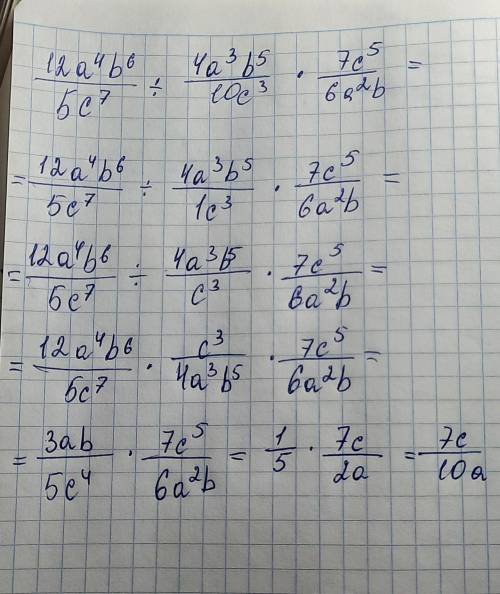 12a⁴b⁶/5c⁷ ÷ 4a³b⁵/10c³ · 7c⁵/6a²b =
= 12a⁴b⁶/5c⁷ ÷ 4a³b⁵/1c³ · 7c⁵/6a²b =
= 12a⁴b⁶/5c⁷ ÷ 4a³b⁵/c³ · 7c⁵/6a²b =
= 12a⁴b⁶/5c⁷ · c³/4a³b⁵ · 7c⁵/6a²b =
= 3ab/5c⁴ · 7c⁵/6a²b = 1/5 · 7c/2a = 7c/10a